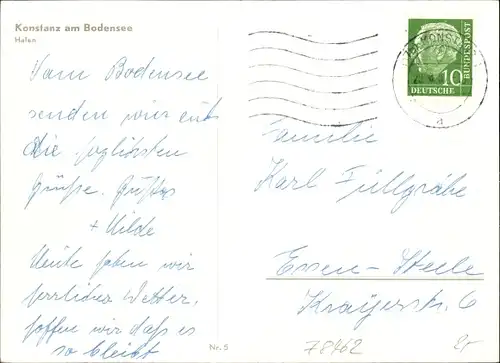 Konstanz am Bodensee
Hafen
Vom Bodensee
senden wir euch
die herzlichsten
Grüße. Gustav
+ Hilde
Heute haben wir
herrliches Wetter,
hoffen wir daß es
so bleibt
Nr. 5
10
DEUTSCHE
BUNDESPOST
a
Familie
Karl Füllgräbe
Essen-Steele
Krayerstr. 6
78462